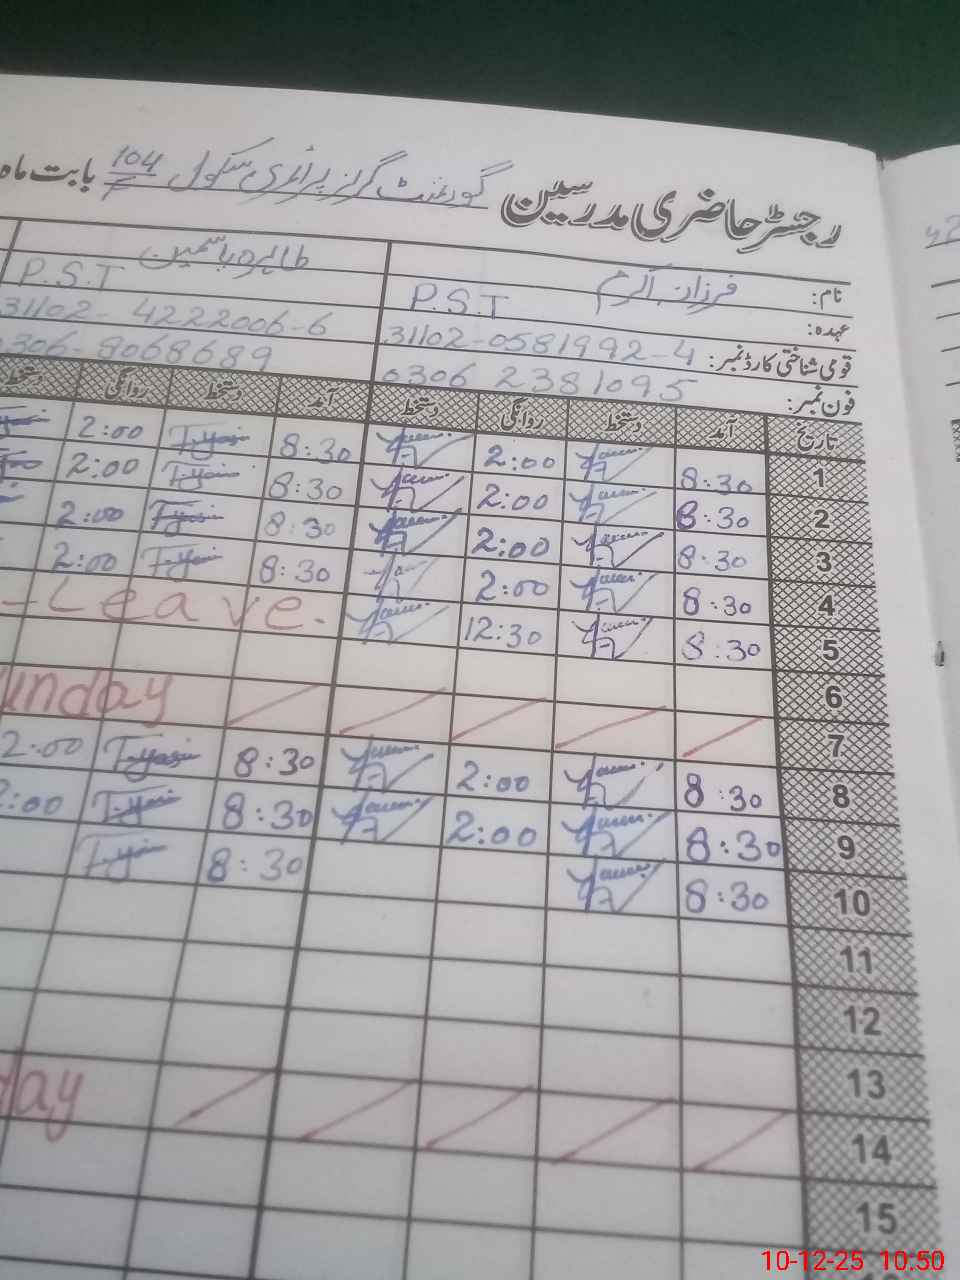 رجسٹر حاضری مدرسین گورنمنٹ گرلز پرائمری سکول 104/F بابت ماہ
نام: فرزانہ اکرم طاہرہ یاسمین
عہدہ: P.S.T P.S.T
قومی شناختی کارڈ نمبر: 31102-0581992-4 31102-4222006-6
فون نمبر: 0306 2381095 0306-8068689
تاریخ آمد دستخط روانگی دستخط آمد دستخط روانگی دستخط
1 8:30 2:00 8:30 T.Yasin 2:00
2 8:30 2:00 8:30 T.Yasin 2:00
3 8:30 2:00 8:30 T.Yasin 2:00
4 8:30 2:00 8:30 T.Yasin 2:00
5 8:30 12:30 Leave.
6
7 unday
8 8:30 2:00 8:30 T.Yasin 2:00
9 8:30 2:00 8:30 T.Yasin 2:00
10 8:30 8:30 T.Yasin
11
12
13
14 day
15
10-12-25 10:50